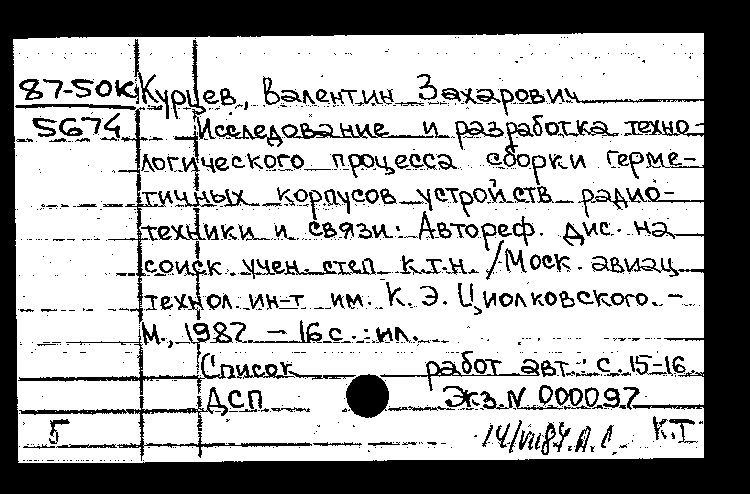 87-50К Курцев, Валентин Захарович
5674 Исследование и разработка техно-
логического процесса сборки герме-
тичных корпусов устройств радио-
техники и связи: Автореф. дис. на
соиск. учен. степ. к.т.н. /Моск. авиац.
технол. ин-т им. К. Э. Циолковского. –
М., 1987. – 16 с. : ил.
Список работ авт.: с. 15-16.
ДСП Экз. N 000097
Б К.Т